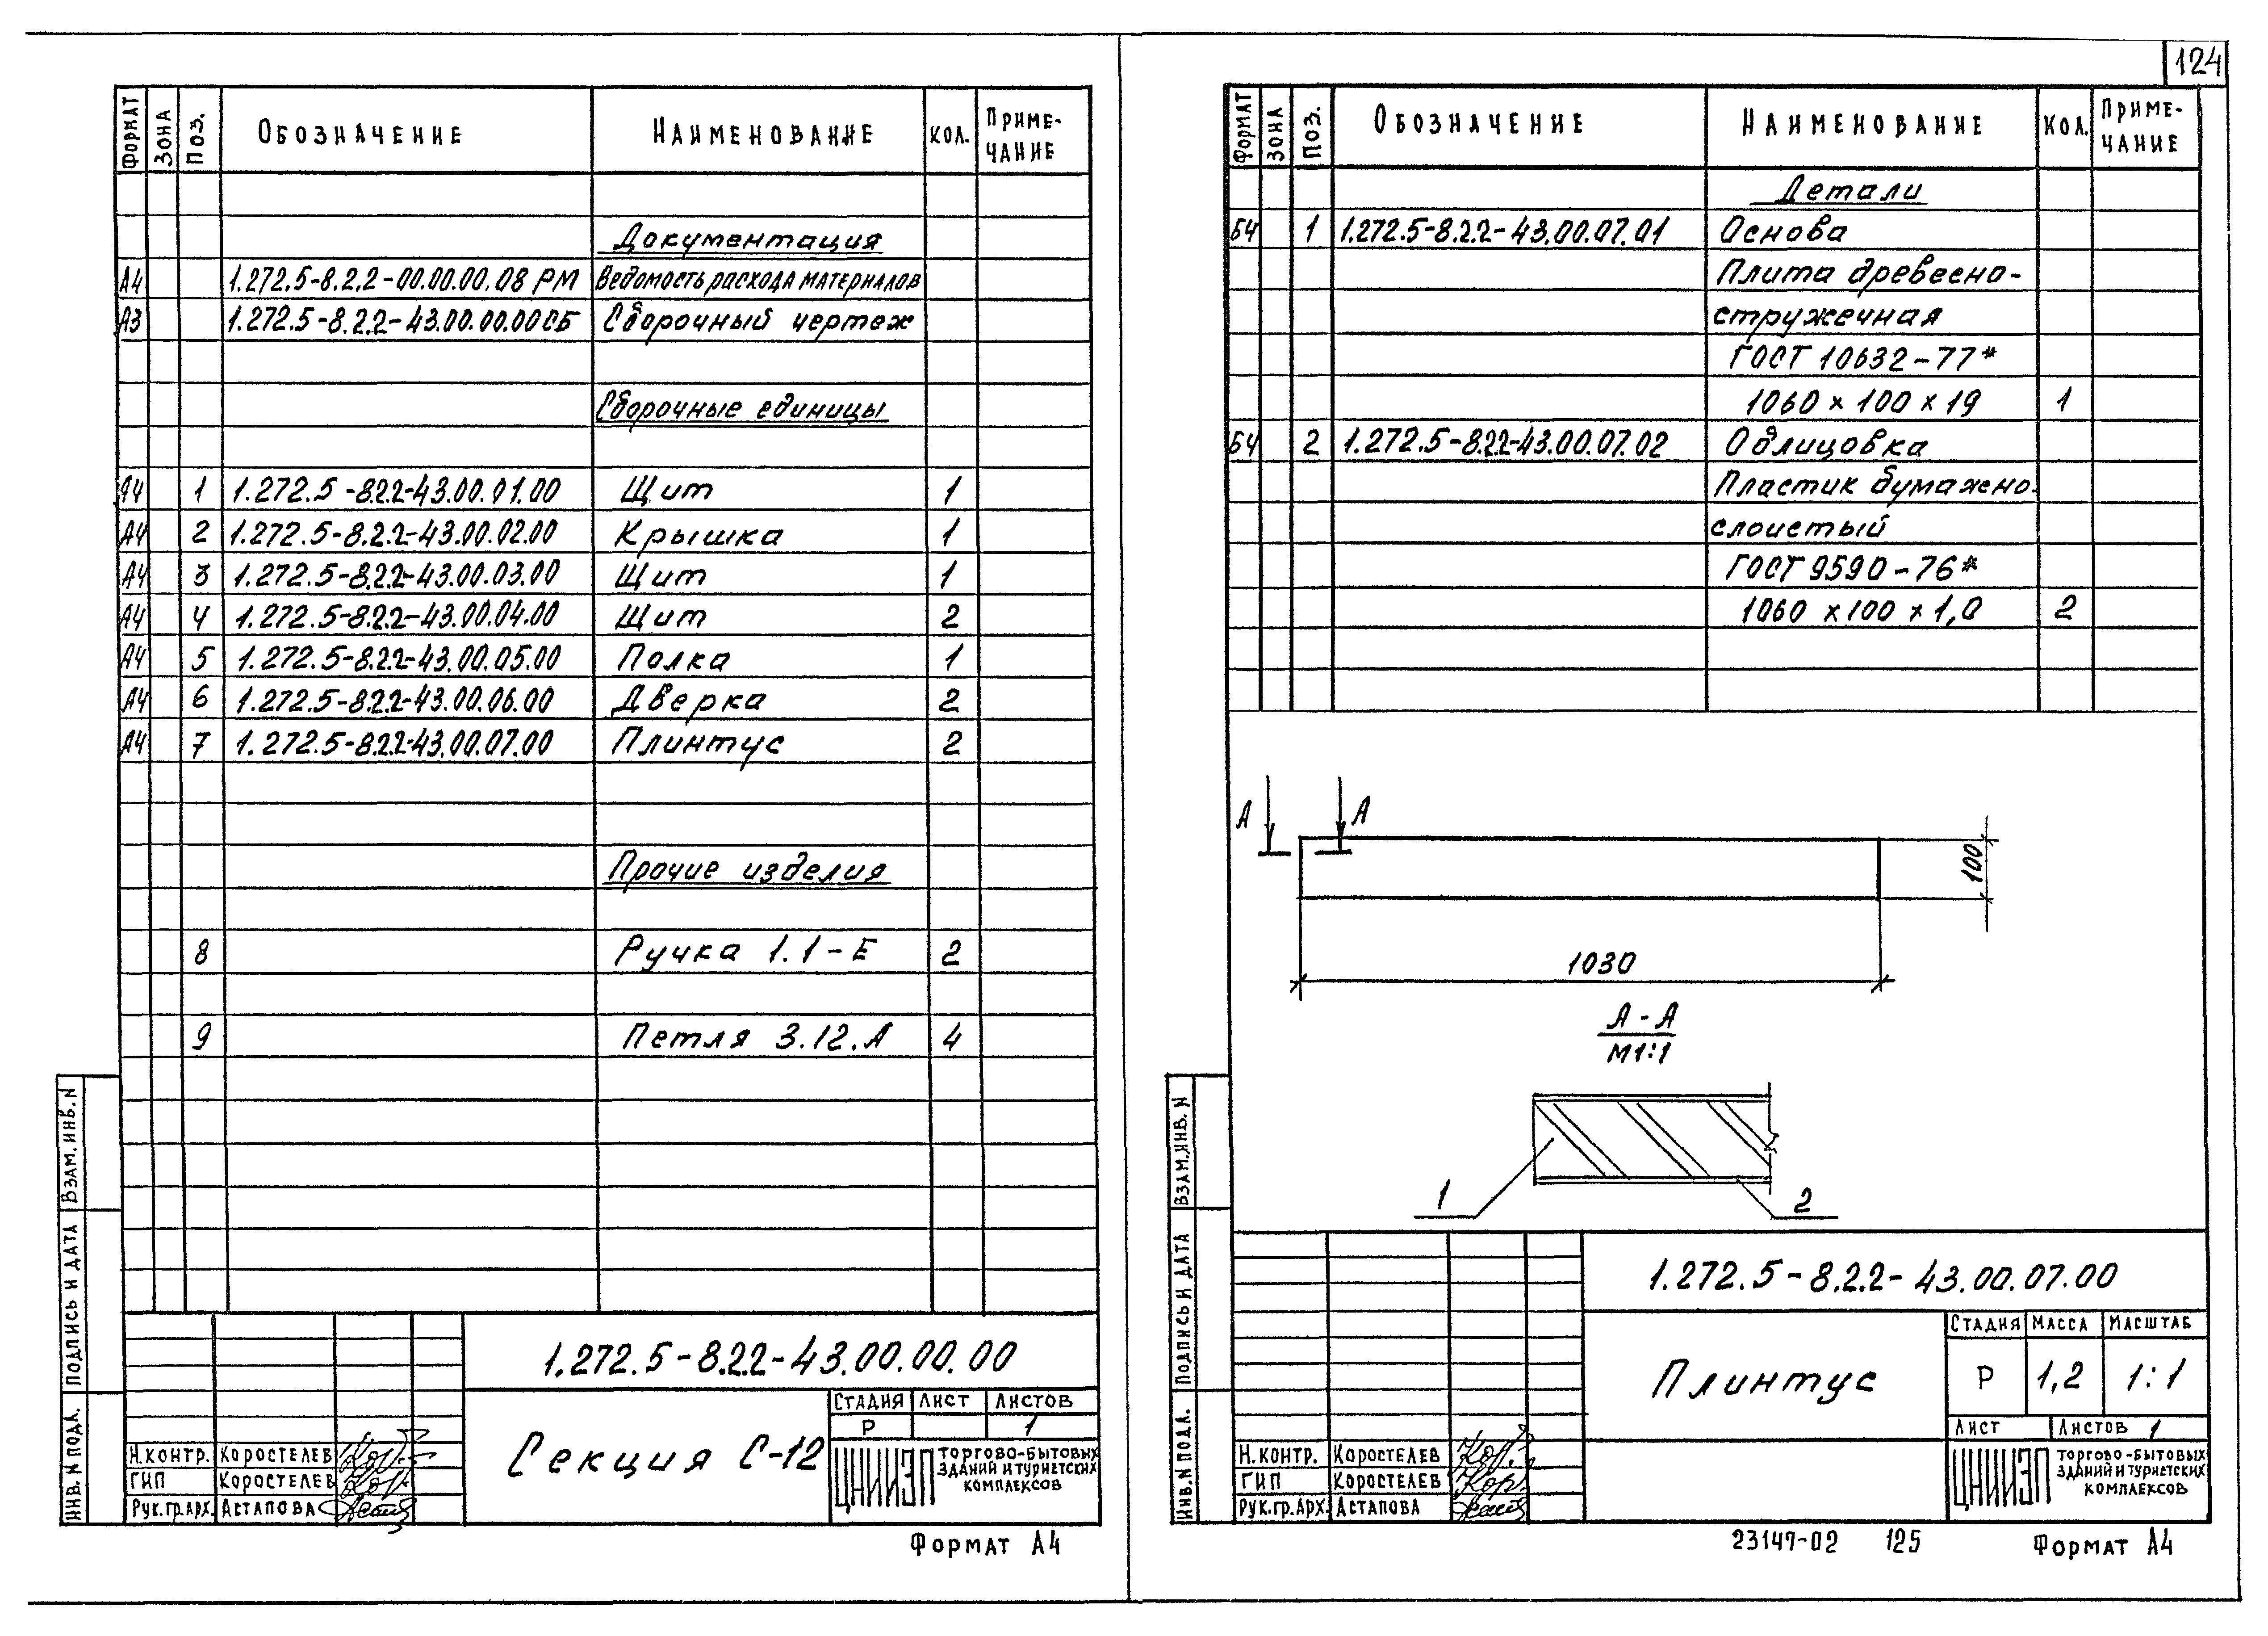 124
ФОРМАТ ЗОНА ПОЗ. ОБОЗНАЧЕНИЕ НАИМЕНОВАНИЕ КОЛ. ПРИМЕ-
ЧАНИЕ
Документация
А4 1.272.5-8.2.2-00.00.00.08 РМ Ведомость расхода материалов
А3 1.272.5-8.2.2-43.00.00.00СБ Сборочный чертеж
Сборочные единицы
А4 1 1.272.5-8.2.2-43.00.01.00 Щит 1
А4 2 1.272.5-8.2.2-43.00.02.00 Крышка 1
А4 3 1.272.5-8.2.2-43.00.03.00 Щит 1
А4 4 1.272.5-8.2.2-43.00.04.00 Щит 2
А4 5 1.272.5-8.2.2-43.00.05.00 Полка 1
А4 6 1.272.5-8.2.2-43.00.06.00 Дверка 2
А4 7 1.272.5-8.2.2-43.00.07.00 Плинтус 2
Прочие изделия
8 Ручка 1.1-Е 2
9 Петля 3.12.А 4
ИНВ. N ПОДЛ. ПОДПИСЬ И ДАТА ВЗАМ. ИНВ. N
1.272.5-8.2.2-43.00.00.00
Секция С-12
СТАДИЯ ЛИСТ ЛИСТОВ
Р 1
Н.КОНТР. КОРОСТЕЛЕВ
ГИП КОРОСТЕЛЕВ
РУК.ГР.АРХ. АСТАПОВА
ЦНИИЭП ТОРГОВО-БЫТОВЫХ
ЗДАНИЙ И ТУРИСТСКИХ
КОМПЛЕКСОВ
ФОРМАТ А4
ФОРМАТ ЗОНА ПОЗ. ОБОЗНАЧЕНИЕ НАИМЕНОВАНИЕ КОЛ. ПРИМЕ-
ЧАНИЕ
Детали
БЧ 1 1.272.5-8.2.2-43.00.07.01 Основа
Плита древесно-
стружечная
ГОСТ 10632-77*
1060 × 100 × 19 1
БЧ 2 1.272.5-8.2.2-43.00.07.02 Облицовка
Пластик бумажно-
слоистый
ГОСТ 9590-76*
1060 × 100 × 1,0 2
А А
100
1030
А - А
М 1:1
1 2
ИНВ. N ПОДЛ. ПОДПИСЬ И ДАТА ВЗАМ. ИНВ. N
1.272.5-8.2.2-43.00.07.00
Плинтус
СТАДИЯ МАССА МАСШТАБ
Р 1,2 1:1
ЛИСТ ЛИСТОВ 1
Н.КОНТР. КОРОСТЕЛЕВ
ГИП КОРОСТЕЛЕВ
РУК.ГР.АРХ. АСТАПОВА
ЦНИИЭП ТОРГОВО-БЫТОВЫХ
ЗДАНИЙ И ТУРИСТСКИХ
КОМПЛЕКСОВ
23147-02 125 ФОРМАТ А4